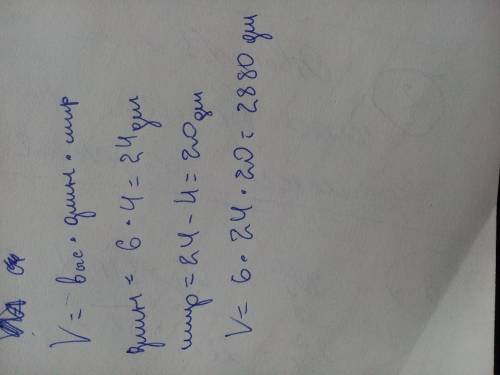 V = выс • длин • шир
длин = 6 • 4 = 24 дм
шир = 24 - 4 = 20 дм
V = 6 • 24 • 20 = 2880 дм